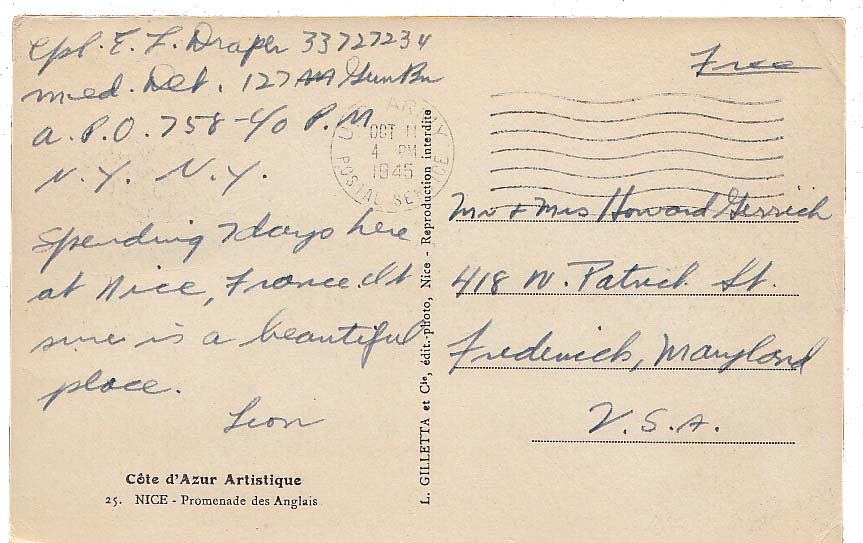 Cpl. E. L. Draper 33727234
Med. Det. 127 AA Gun Bn
A.P.O. 758 - c/o P.M
N.Y. N.Y.
Spending 7 days here
at Nice, France. It
sure is a beautiful
place.
Leon
Côte d'Azur Artistique
25. NICE - Promenade des Anglais
L. GILLETTA et Cie, édit.-photo, Nice - Reproduction interdite
U.S. ARMY
OCT 11
4 PM
1945
POSTAL SERVICE
Free
Mr + Mrs Howard Gerrich
418 N. Patrick St.
Frederick, Maryland
U.S.A.